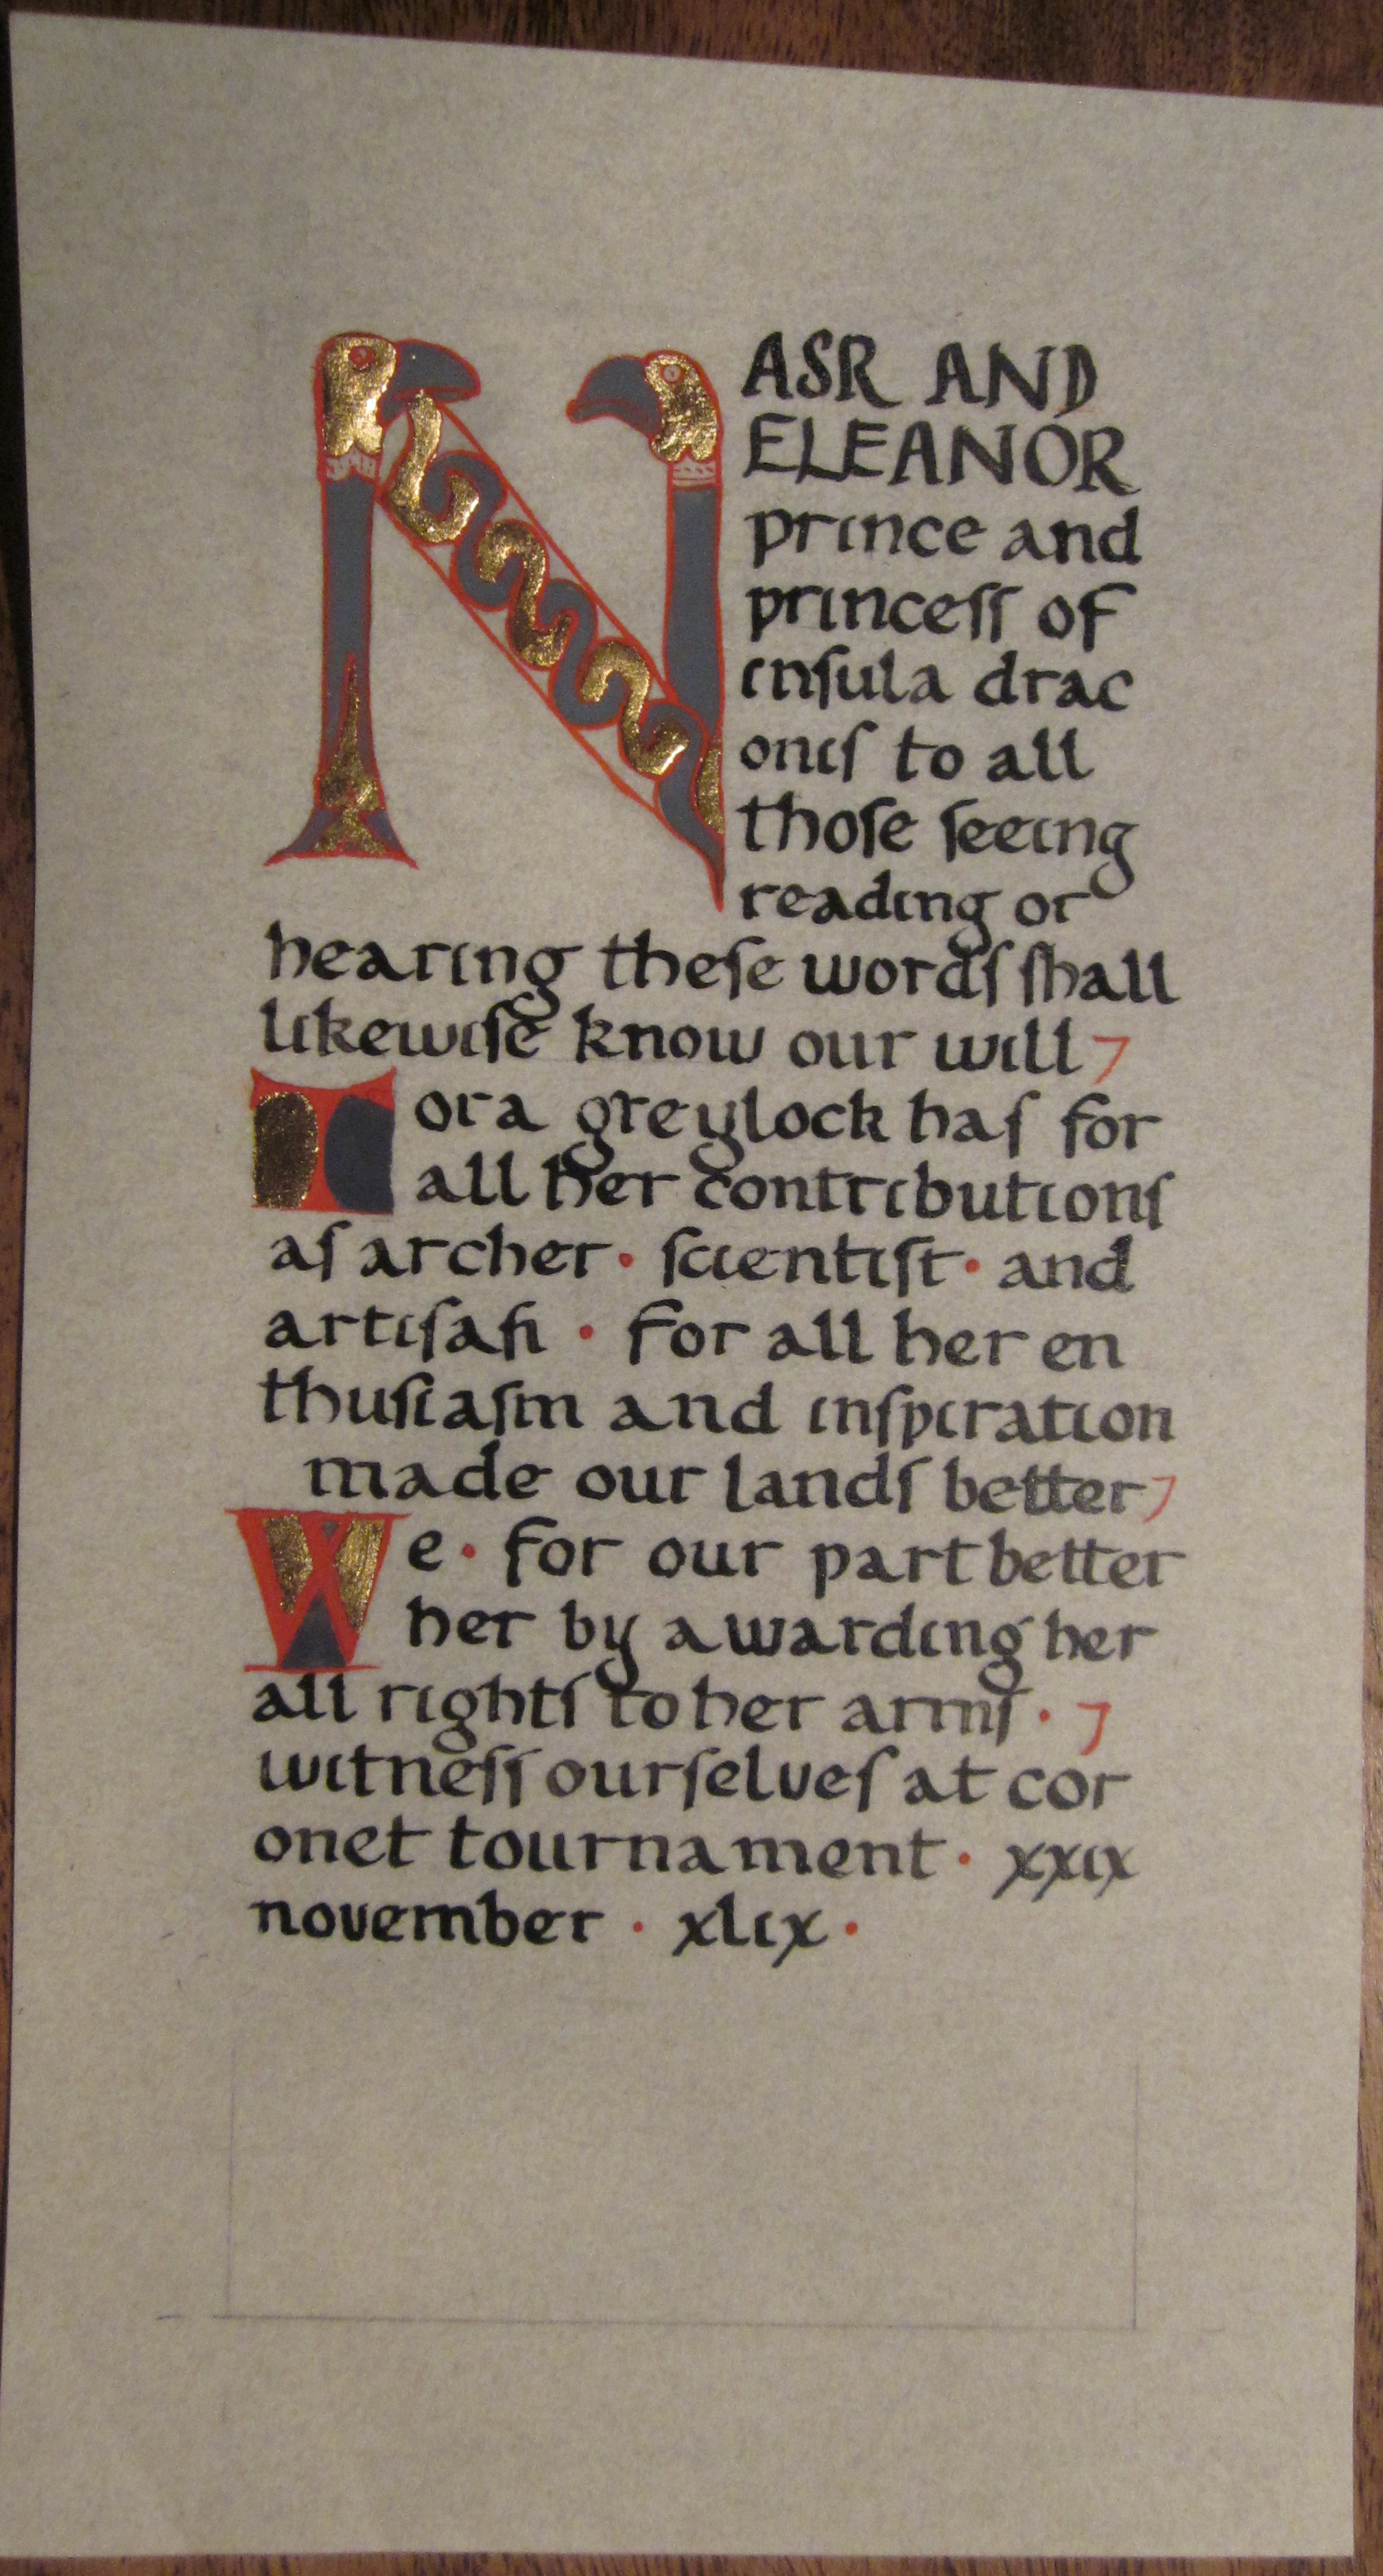 NASR AND
ELEANOR
prince and
princeſſ of
inſula drac
oniſ to all
thoſe ſeeing
reading or
hearing theſe wordſ ſhall
likewiſe know our will ⁊
Tora greylock haſ for
all her contributionſ
aſ archer · ſcientiſt · and
artiſan · for all her en
thuſiaſm and inſpiration
made our landſ better ⁊
We · for our part better
her by awarding her
all rightſ to her armſ · ⁊
witneſſ ourſelveſ at cor
onet tournament · xxix
november · xlix ·